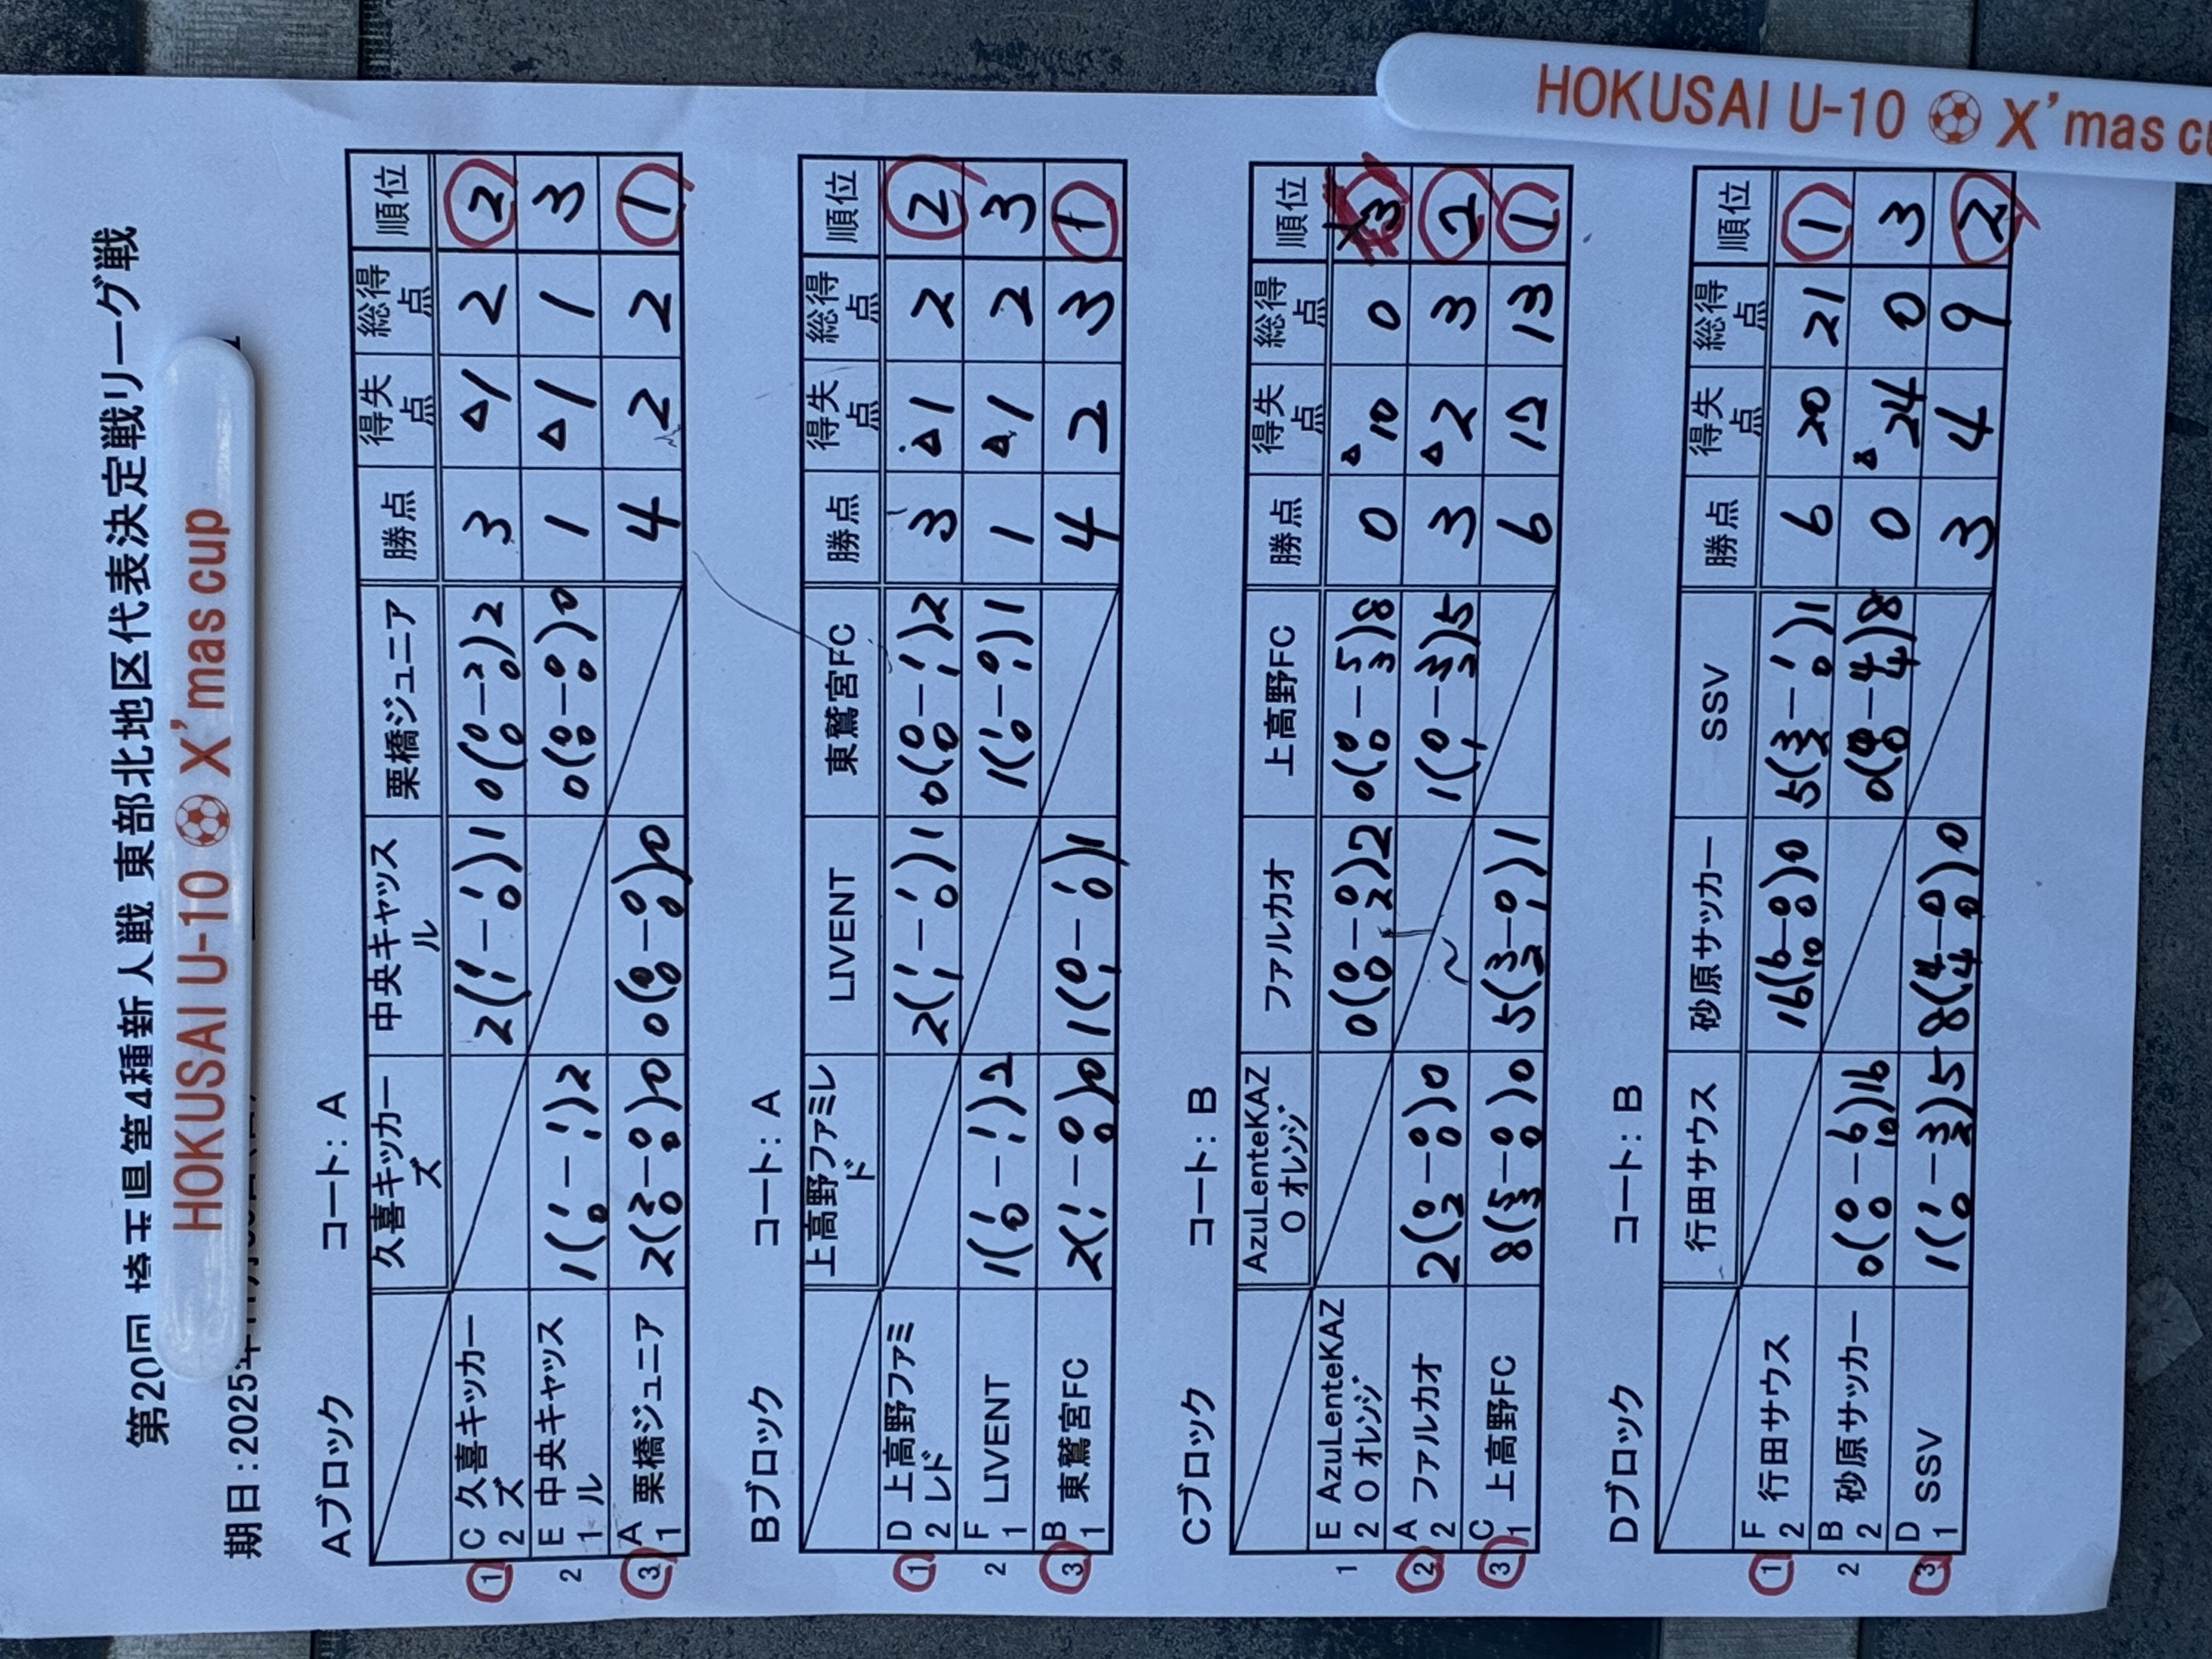 HOKUSAI U-10 X'mas cu
第20回 埼玉県第4種新人戦 東部北地区代表決定戦リーグ戦
HOKUSAI U-10 X'mas cup
期日:2025年
Aブロック コート: A
久喜キッカーズ 中央キャッスル 栗橋ジュニア 勝点 得失点 総得点 順位
1 C2 久喜キッカーズ 2(1-1 1-0)1 0(0-2 0-0)2 3 △1 2 2
2 E1 中央キャッスル 1(1-1 0-1)2 0(0-0 0-0)0 1 △1 1 3
3 A1 栗橋ジュニア 2(2-0 0-0)0 0(0-0 0-0)0 4 2 2 1
Bブロック コート: A
上高野ファミレド LIVENT 東鷲宮FC 勝点 得失点 総得点 順位
1 D2 上高野ファミレド 2(1-1 1-0)1 0(0-1 0-1)2 3 △1 2 2
2 F1 LIVENT 1(1-1 0-1)2 1(1-0 0-1)1 1 △1 2 3
3 B1 東鷲宮FC 2(1-0 1-0)0 1(0-1 1-0)1 4 2 3 1
Cブロック コート: B
AzuLenteKAZO オレンジ ファルカオ 上高野FC 勝点 得失点 総得点 順位
1 E2 AzuLenteKAZO オレンジ 0(0-0 0-2)2 0(0-5 0-3)8 0 △10 0 3
2 A2 ファルカオ 2(0-0 2-0)0 1(0-3 1-2)5 3 △2 3 2
3 C1 上高野FC 8(5-0 3-0)0 5(3-0 2-1)1 6 12 13 1
Dブロック コート: B
行田サウス 砂原サッカー SSV 勝点 得失点 総得点 順位
1 F2 行田サウス 16(6-0 10-0)0 5(3-1 2-0)1 6 20 21 1
2 B2 砂原サッカー 0(0-6 0-10)16 0(0-4 0-4)8 0 △24 0 3
3 D1 SSV 1(1-3 0-2)5 8(4-0 4-0)0 3 4 9 2